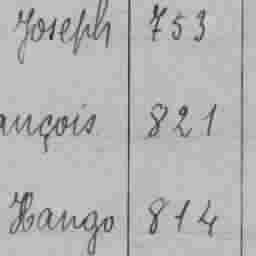 Joseph 753
ançois 821
Hango 814